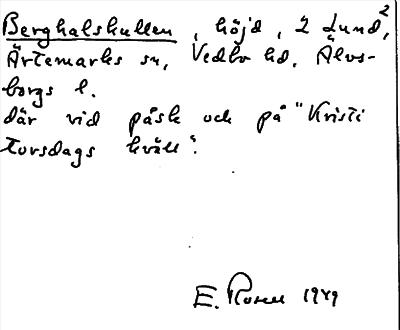 Berghalskullen, höjd, Ä Lund²,
Ärtemarks sn, Vedbo hd, Älvs-
borgs l.
där vid påsk och på "Kristi
torsdags kväll".
E. Rosell 1949